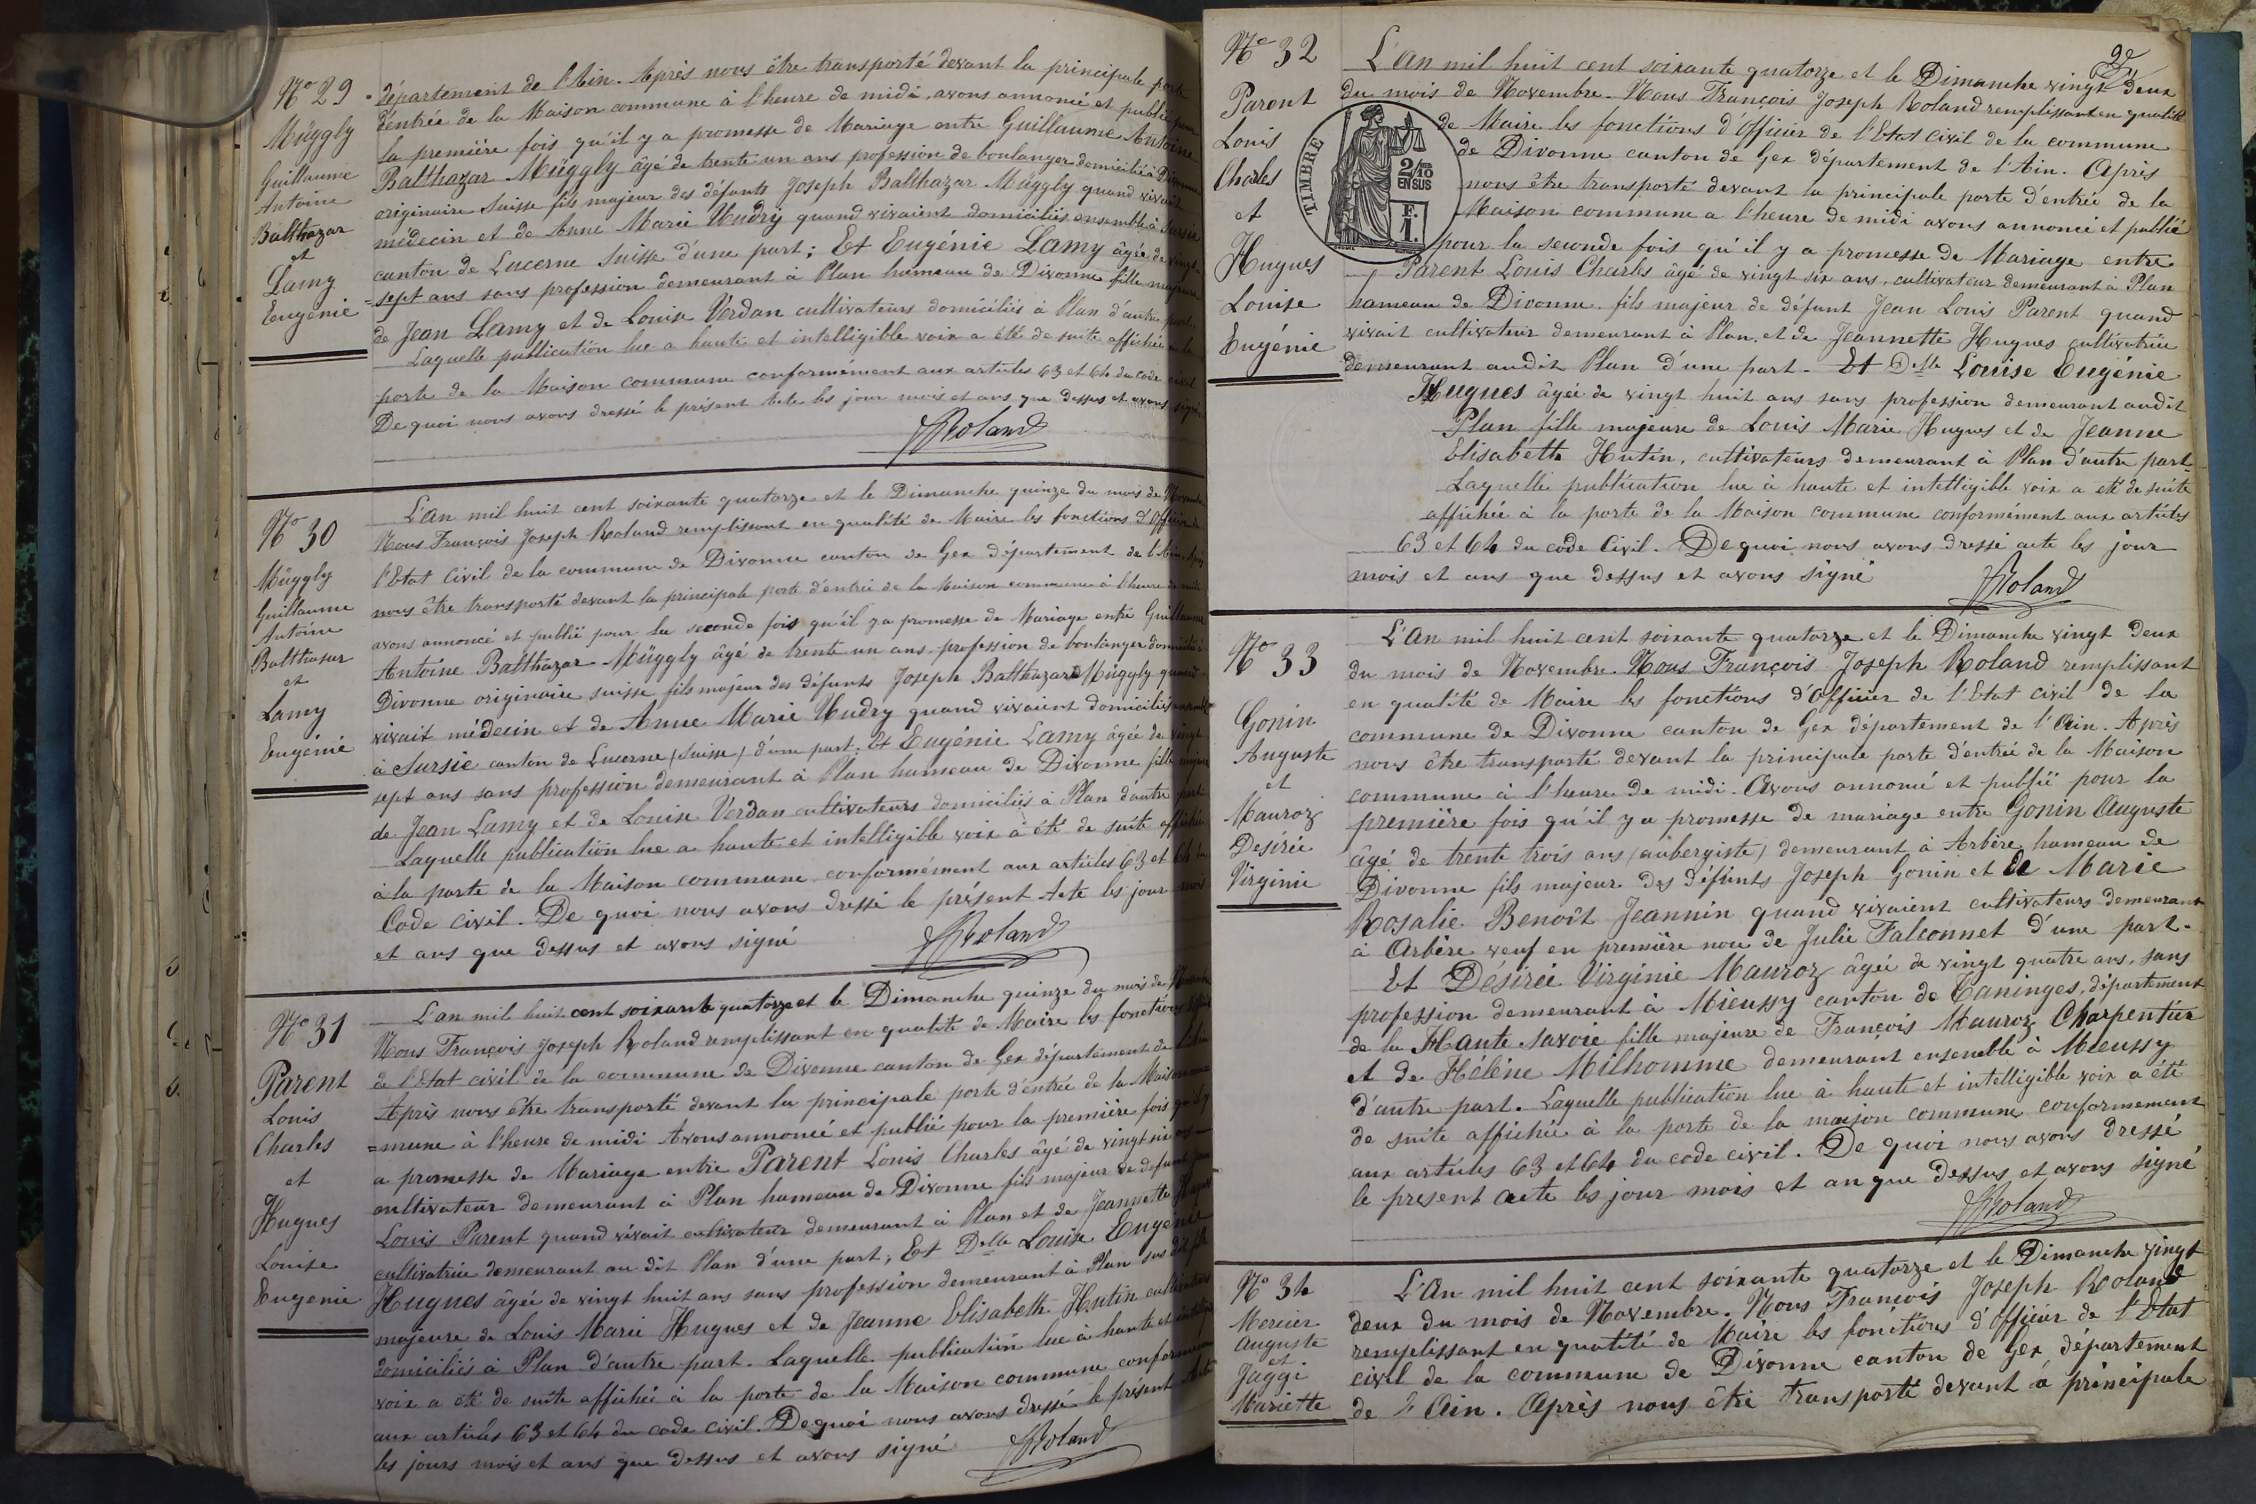 Nº 29
Müggly
Guillaume
Antoine
Balthazar
et
Lamy
Eugénie
département de l'Ain. Après nous être transporté devant la principale porte
d'entrée de la Maison commune à l'heure de midi, avons annoncé et publié pour
la première fois qu'il y a promesse de Mariage entre Guillaume Antoine
Balthazar Müggly âgé de trente un ans profession de boulanger domicilié à Divonne
originaire Suisse fils majeur des défunts Joseph Balthazar Müggly quand vivait
médecin et de Anne Marie Wudry quand vivaient domiciliés ensemble à Sursie
canton de Lucerne Suisse d'une part ; Et Eugénie Lamy âgée de vingt
sept ans sans profession demeurant à Plan hameau de Divonne fille majeure
de Jean Lamy et de Louise Verdan cultivateurs domiciliés à Plan d'autre part.
Laquelle publication lue a haute et intelligible voix a été de suite affichée à la
porte de la Maison commune conformément aux articles 63 et 64 du code civil
De quoi nous avons dressé le présent acte les jour mois et ans que dessus et avons signé
JRoland
Nº 30
Müggly
Guillaume
Antoine
Balthasar
et
Lamy
Eugénie
L'an mil huit cent soixante quatorze et le Dimanche quinze du mois de Novembre
Nous François Joseph Roland remplissant en qualité de Maire les fonctions d'Officier de
l'Etat Civil de la commune de Divonne canton de Gex département de l'Ain. Après
nous être transporté devant la principale porte d'entrée de la Maison commune à l'heure de midi
avons annoncé et publié pour la seconde fois qu'il y a promesse de Mariage entre Guillaume
Antoine Balthazar Müggly âgé de trente un ans profession de boulanger domicilié à
Divonne originaire suisse fils majeur des défunts Joseph Balthazard Müggly quand
vivait médecin et de Anne Marie Wudry quand vivaient domiciliés ensemble
à Sursie canton de Lucerne (Suisse) d'une part. Et Eugénie Lamy âgée de vingt
sept ans sans profession demeurant à Plan hameau de Divonne fille majeure
de Jean Lamy et de Louise Verdan cultivateurs domiciliés à Plan d'autre part
Laquelle publication lue a haute et intelligible voix a été de suite affichée
à la porte de la Maison commune conformément aux articles 63 et 64 du
Code civil. De quoi nous avons dressé le présent Acte les jour mois
et ans que dessus et avons signé
JRoland
Nº 31
Parent
Louis
Charles
et
Hugues
Louise
Eugenie
L'an mil huit cent soixante quatorze et le Dimanche quinze du mois de Novembre
Nous François Joseph Roland remplissant en qualité de Maire les fonctions
de l'Etat civil de la commune de Divonne canton de Gex département de l'Ain
Après nous être transporté devant la principale porte d'entrée de la Maison com
=mune à l'heure de midi Avons annoncé et publié pour la première fois qu'il y
a promesse de Mariage entre Parent Louis Charles âgé de vingt six ans
cultivateur demeurant à Plan hameau de Divonne fils majeur de defunt Jean
Louis Parent quand vivait cultivateur demeurant à Plan et de Jeannette Hugues
cultivatrice demeurant au dit Plan d'une part ; Et Delle Louise Eugénie
Hugues âgée de vingt huit ans sans profession demeurant à Plan sus dit fille
majeure de Louis Marie Hugues et de Jeanne Elisabeth Hutin cultivateurs
domiciliés à Plan d'autre part. Laquelle publication lue à haute et intelligible
voix a été de suite affichée à la porte de la Maison commune conformément
aux articles 63 et 64 du code civil. De quoi nous avons dressé le présent Acte
les jours mois et ans que dessus et avons signé
JRoland
Nº 32
Parent
Louis
Charles
et
Hugues
Louise
Eugénie
TIMBRE
2/10
EN SUS
F.
1.
L'An mil huit cent soixante quatorze et le Dimanche vingt deux
du mois de Novembre. Nous François Joseph Roland remplissant en qualité
de Maire les fonctions d'Officier de l'Etat Civil de la commune
de Divonne canton de Gex département de l'Ain. Après
nous être transporté devant la principale porte d'entrée de la
Maison commune a l'heure de midi avons annoncé et publié
pour la seconde fois qu'il y a promesse de Mariage entre
Parent Louis Charles âgé de vingt six ans, cultivateur demeurant à Plan
hameau de Divonne fils majeur de défunt Jean Louis Parent quand
vivait cultivateur demeurant à Plan et de Jeannette Hugues cultivatrice
demeurant audit Plan d'une part. Et Delle Louise Eugénie
Hugues âgée de vingt huit ans sans profession demeurant audit
Plan fille majeure de Louis Marie Hugues et de Jeanne
Elisabeth Hutin, cultivateurs demeurant à Plan d'autre part
Laquelle publication lue à haute et intelligible voix a été de suite
affichée à la porte de la Maison commune conformément aux articles
63 et 64 du code Civil. De quoi nous avons dressé acte les jour
mois et ans que dessus et avons signé
JRoland
Nº 33
Gonin
Auguste
et
Mauroz
Desirée
Virginie
L'An mil huit cent soixante quatorze et le Dimanche vingt deux
du mois de Novembre. Nous François Joseph Roland remplissant
en qualité de Maire les fonctions d'Officier de l'Etat civil de la
commune de Divonne canton de Gex département de l'Ain. Après
nous être transporté devant la principale porte d'entrée de la Maison
commune à l'heure de midi. Avons annoncé et publié pour la
première fois qu'il y a promesse de mariage entre Gonin Auguste
âgé de trente trois ans (aubergiste) demeurant à Arbère hameau de
Divonne fils majeur des défunts Joseph Gonin et de Marie
Rosalie Benoît Jeannin quand vivaient cultivateurs demeurant
à Arbère veuf en première noce de Julie Falconnet d'une part.
Et Désirée Virginie Mauroz âgée de vingt quatre ans, sans
profession demeurant à Mieussy canton de Taninges, département
de la Haute Savoie fille majeure de François Mauroz Charpentier
et de Hélène Milhomme demeurant ensemble à Mieussy
d'autre part. Laquelle publication lue à haute et intelligible voix a été
de suite affichée à la porte de la maison commune conformement
aux articles 63 et 64 du code civil. De quoi nous avons dressé
le present acte les jour mois et an que dessus et avons signé
JRoland
Nº 34
Mercier
Auguste
et
Jaggi
Mariette
L'An mil huit cent soixante quatorze et le Dimanche vingt
deux du mois de Novembre. Nous François Joseph Roland
remplissant en qualité de Maire les fonctions d'Officier de l'Etat
civil de la commune de Divonne canton de Gex département
de l'Ain. Après nous être transporté devant a principale